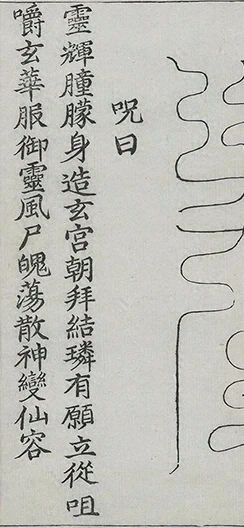 呪曰
靈輝瞳朦身造玄宮朝拜結璘有願立從咀
嚼玄華服御靈風尸魄蕩散神變仙容